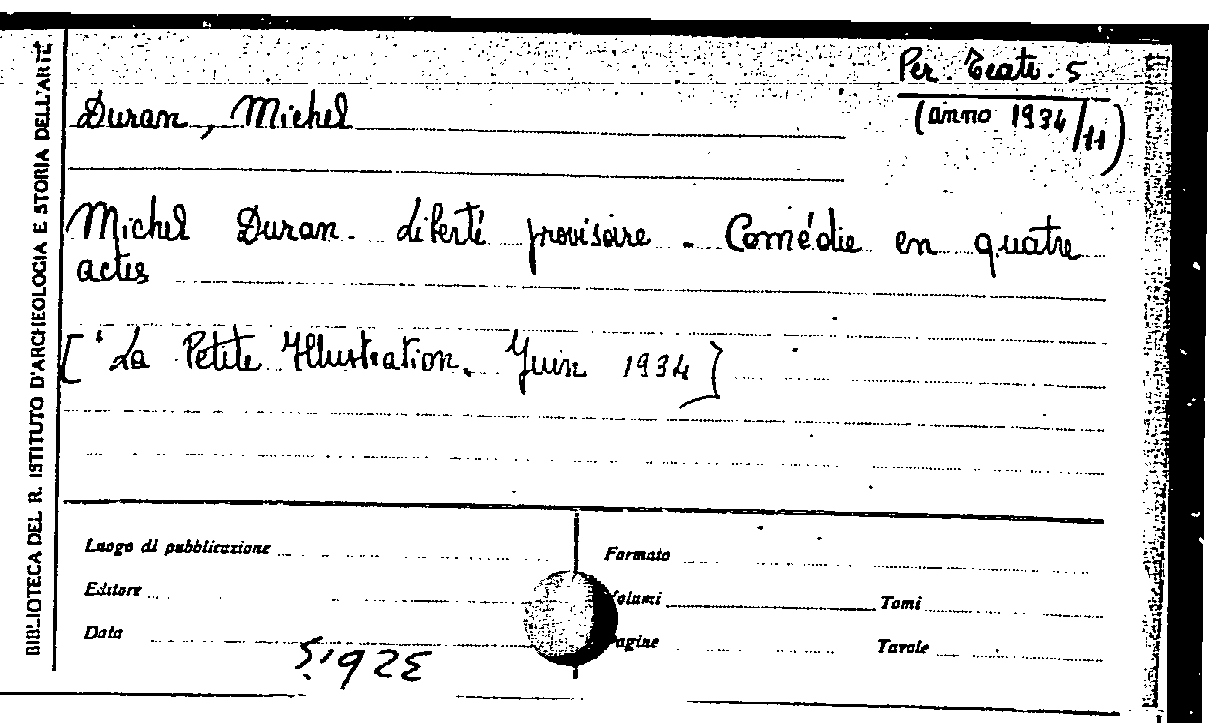 BIBLIOTECA DEL R. ISTITUTO D'ARCHEOLOGIA E STORIA DELL'ARTE
Per. Teatr. 5
(anno 1934/11)
Duran, Michel
Michel Duran. Liberté provisoire - Comédie en quatre
actes
[La Petite Illustration. Juin 1934]
Luogo di pubblicazione
Formato
Editore
Volumi
Tomi
Data
Pagine
Tavole